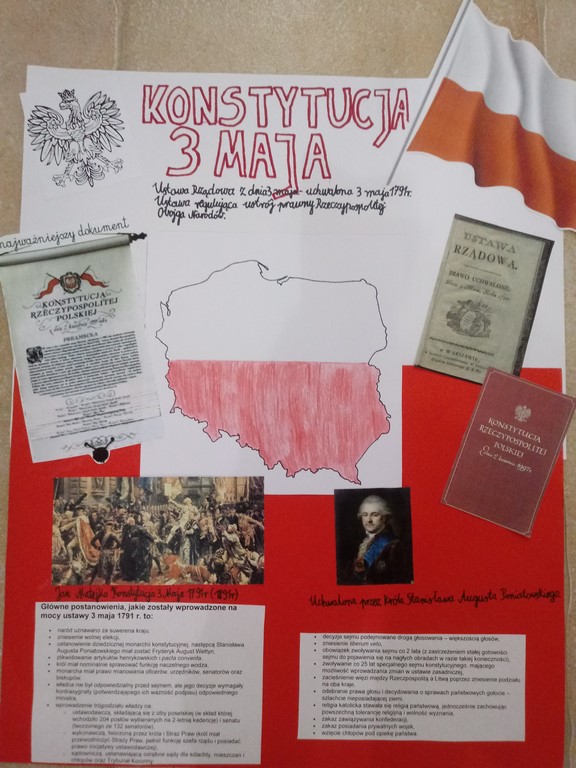 KONSTYTUCJA
3 MAJA
Ustawa Rządowa z dnia 3 maja - uchwalona 3 maja 1791r.
Ustawa regulująca ustrój prawny Rzeczypospolitej
Obojga Narodów.
najważniejszy dokument
KONSTYTUCJA
RZECZYPOSPOLITEJ
POLSKIEJ
PREAMBUŁA
USTAWA
RZĄDOWA.
PRAWO UCHWALONE
w WARSZAWIE
KONSTYTUCJA
RZECZYPOSPOLITEJ
POLSKIEJ
2 kwietnia 1997r.
Jan Matejko Konstytucja 3 Maja 1791r (1891r)
Uchwalona przez Króla Stanisława Augusta Poniatowskiego
Główne postanowienia, jakie zostały wprowadzone na
mocy ustawy 3 maja 1791 r. to:
• naród uznawano za suwerena kraju,
• zniesienie wolnej elekcji,
• ustanowienie dziedzicznej monarchii konstytucyjnej, następcą Stanisława
Augusta Poniatowskiego miał zostać Fryderyk August Wettyn,
• zlikwidowanie artykułów henrykowskich i pacta conventa,
• król miał nominalnie sprawować funkcję naczelnego wodza,
• monarcha miał prawo mianowania oficerów, urzędników, senatorów oraz
biskupów,
• władca nie był odpowiedzialny przed sejmem, ale jego decyzje wymagały
kontrasygnaty (potwierdzającego ich ważność podpisu) odpowiedniego
ministra,
• wprowadzenie trójpodziału władzy na:
ustawodawczą, składającą się z izby poselskiej (w skład której
wchodziło 204 posłów wybieranych na 2-letnią kadencję) i senatu
(tworzonego ze 132 senatorów),
wykonawczą, tworzoną przez króla i Straż Praw (król miał
przewodniczyć Straży Praw, pełnić funkcję szefa rządu i posiadać
prawo inicjatywy ustawodawczej),
sądowniczą, ustanawiającą odrębne sądy dla szlachty, mieszczan i
chłopów oraz Trybunał Koronny.
• decyzje sejmu podejmowane drogą głosowania – większością głosów,
• zniesienie liberum veto,
• obowiązek zwoływania sejmu co 2 lata (z zastrzeżeniem stałej gotowości
sejmu do pojawienia się na nagłych obradach w razie takiej konieczności),
• zwoływane co 25 lat specjalnego sejmu konstytucyjnego, mającego
możliwość wprowadzania zmian w ustawie zasadniczej,
• zacieśnienie więzi między Rzeczpospolitą a Litwą poprzez zniesienie podziału
na oba kraje,
• odebranie prawa głosu i decydowania o sprawach państwowych gołocie –
szlachcie nieposiadającej ziemi,
• religia katolicka stawała się religią państwową, jednocześnie zachowując
powszechną tolerancję religijną i wolność wyznania,
• zakaz zawiązywania konfederacji,
• zakaz posiadania prywatnych wojsk,
• wzięcie chłopów pod opiekę państwa.